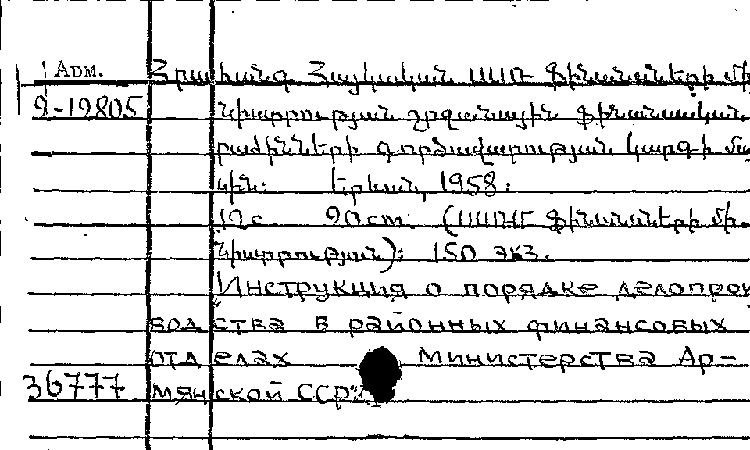 Арм. Հրահանգ Հայկական ՍՍՌ ֆինանսների մի-
2-19805 նիստրության շրջանային ֆինանսական
բաժինների գործավարության կարգի մա-
սին։ Երևան, 1958։
12с. 20cm. (ՍՍՌՄ ֆինանսների մի-
նիստրության)։ 150 экз.
"Инструкция о порядке делопроиз
водства в районных финансовых
отделах Министерства Ар-
36777 мянской ССР"